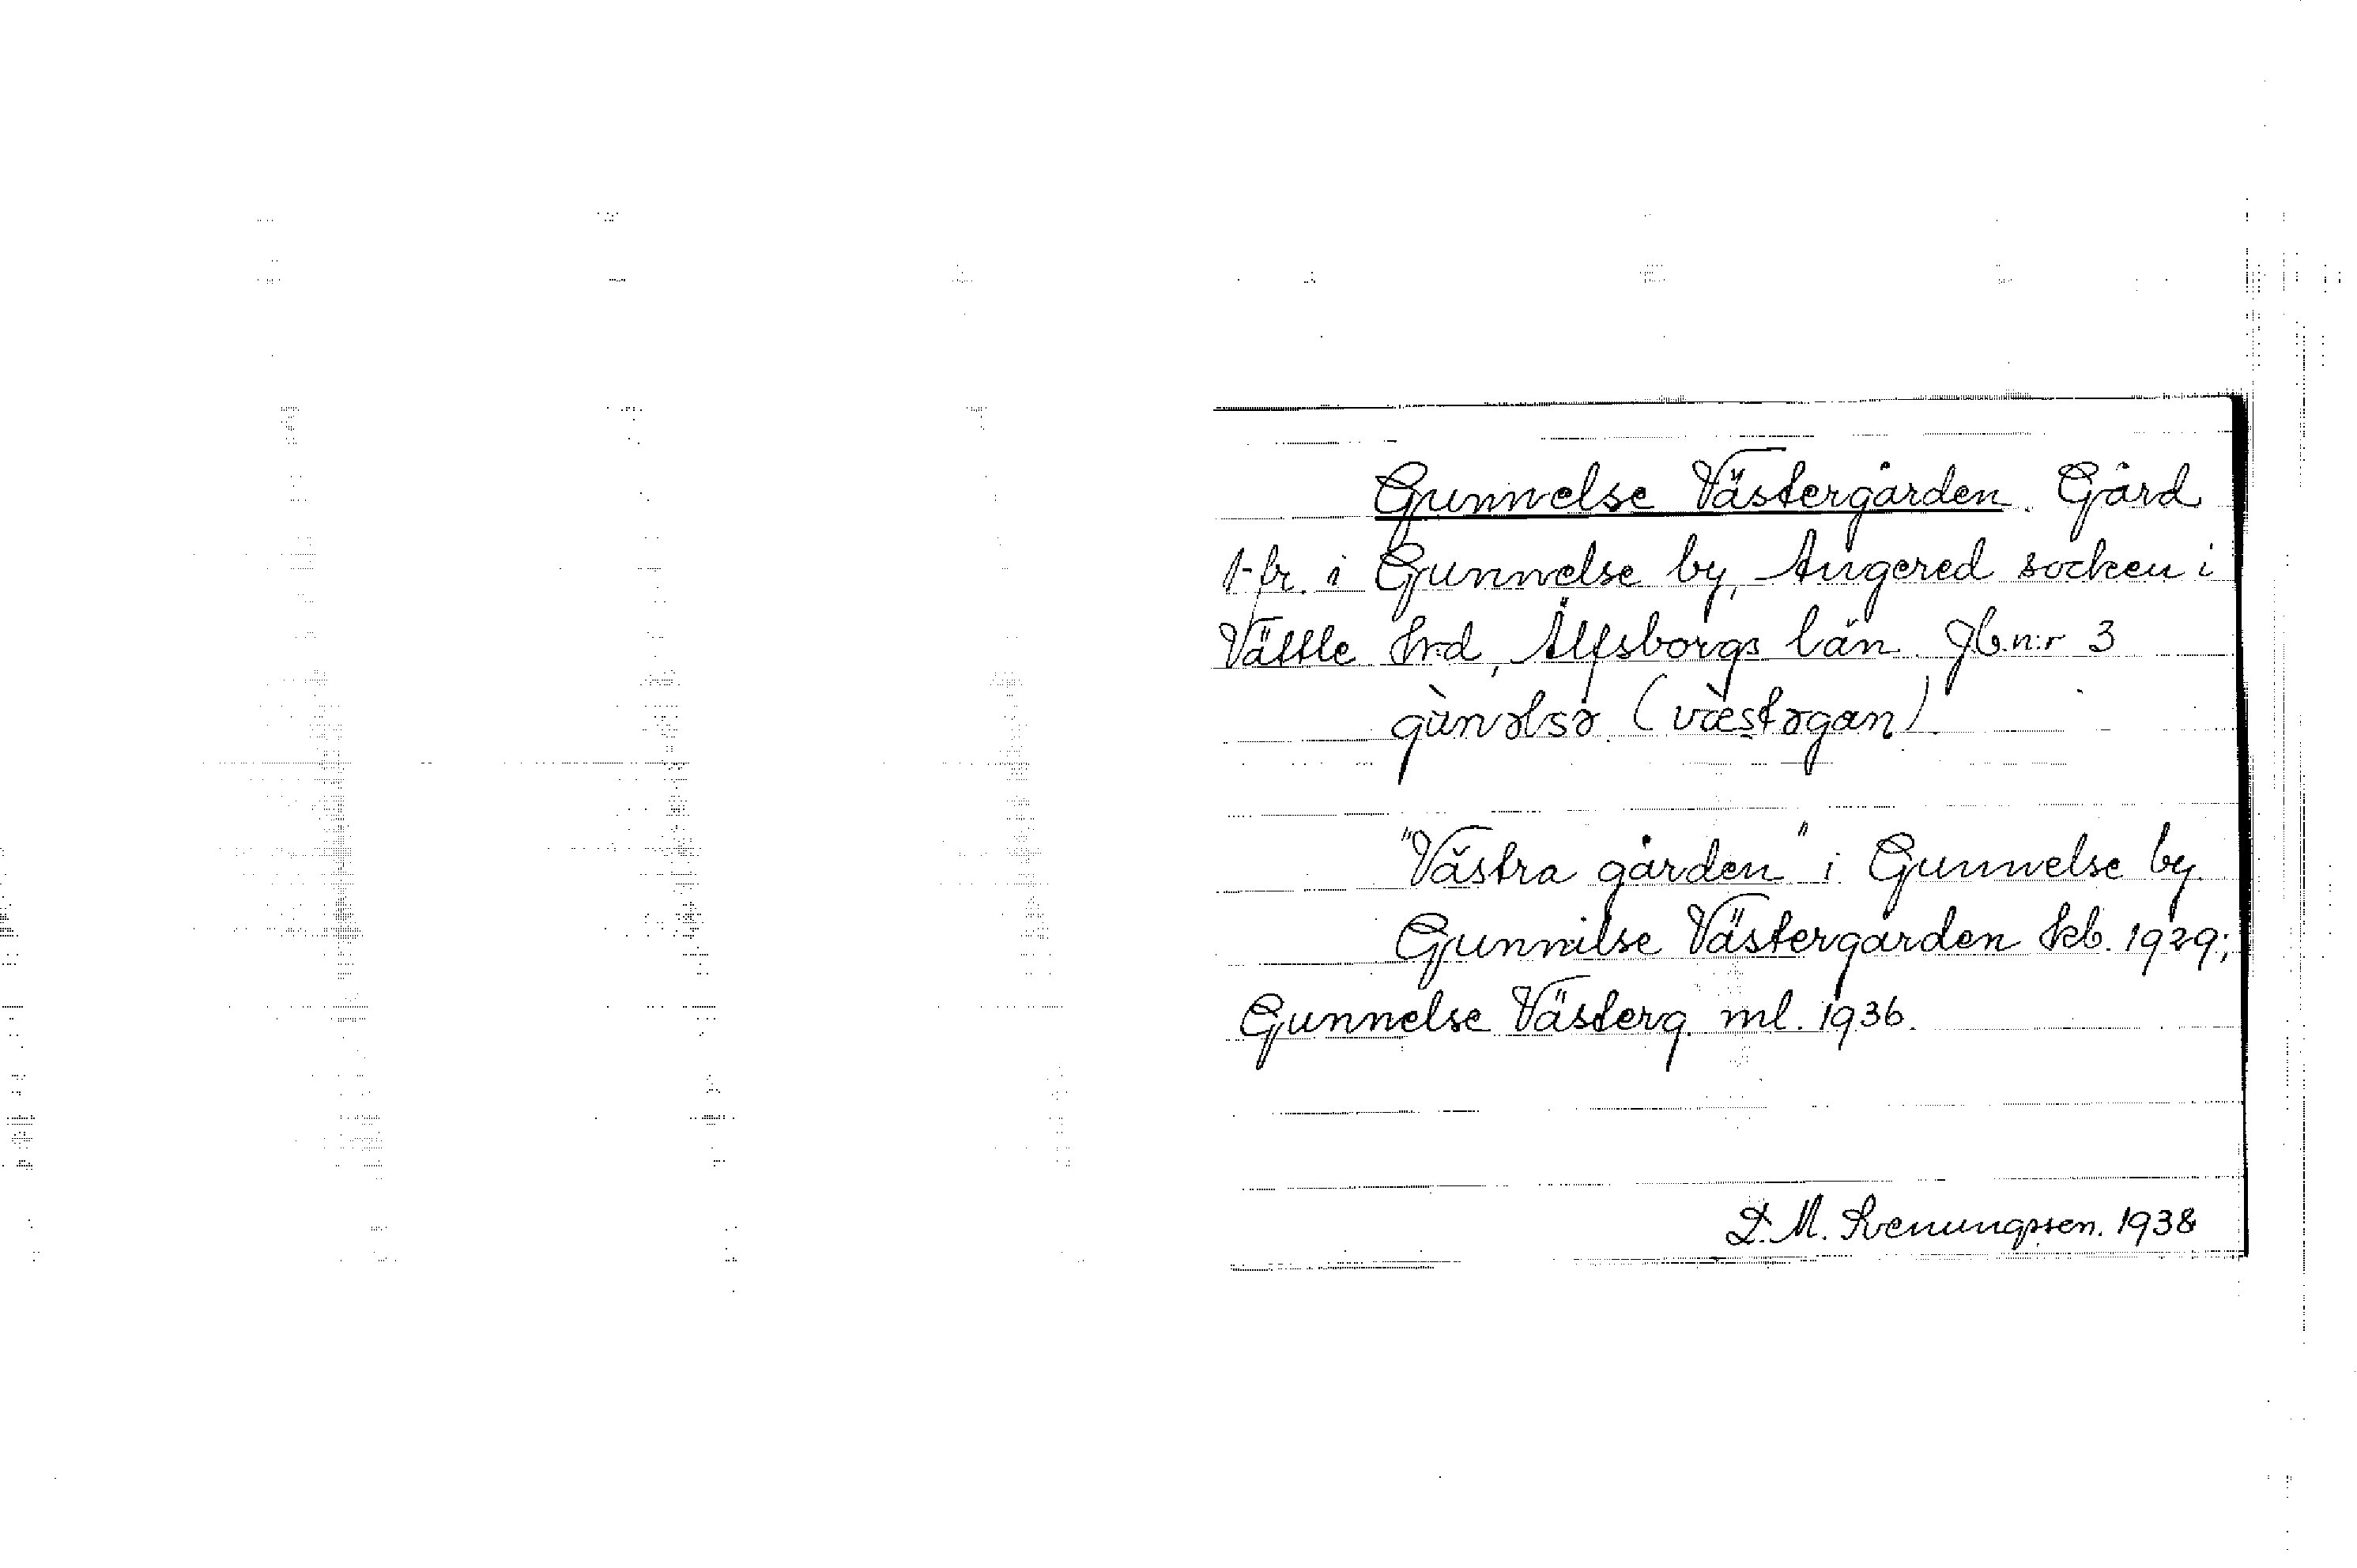 Gunnelse Västergården. Gård
1-br. i Gunnelse by, Angered socken i
Vättle hrd, Älfsborgs län. Jb.n:r 3
gùnəlsə (væstəgan)
"Västra gården" i Gunnelse by.
Gunnilse Västergården kb. 1929;
Gunnelse Västerg. ml. 1936.
D. M. Svenungsson. 1938